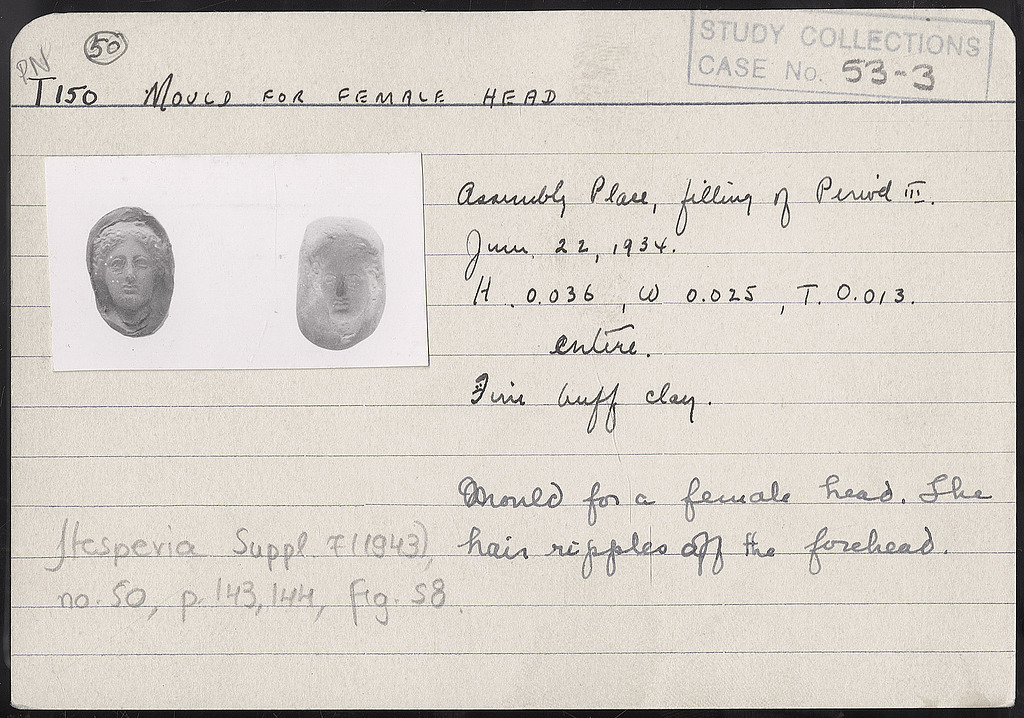 PN
50
STUDY COLLECTIONS
CASE No. 53-3
T 150 MOULD FOR FEMALE HEAD
Assembly Place, filling of Period III.
June 22, 1934.
H. 0.036, W 0.025, T. 0.013.
entire.
Fine buff clay.
Mould for a female head. The
hair ripples off the forehead.
Hesperia Suppl 7 (1943),
no. 50, p. 143, 144, fig. 58.